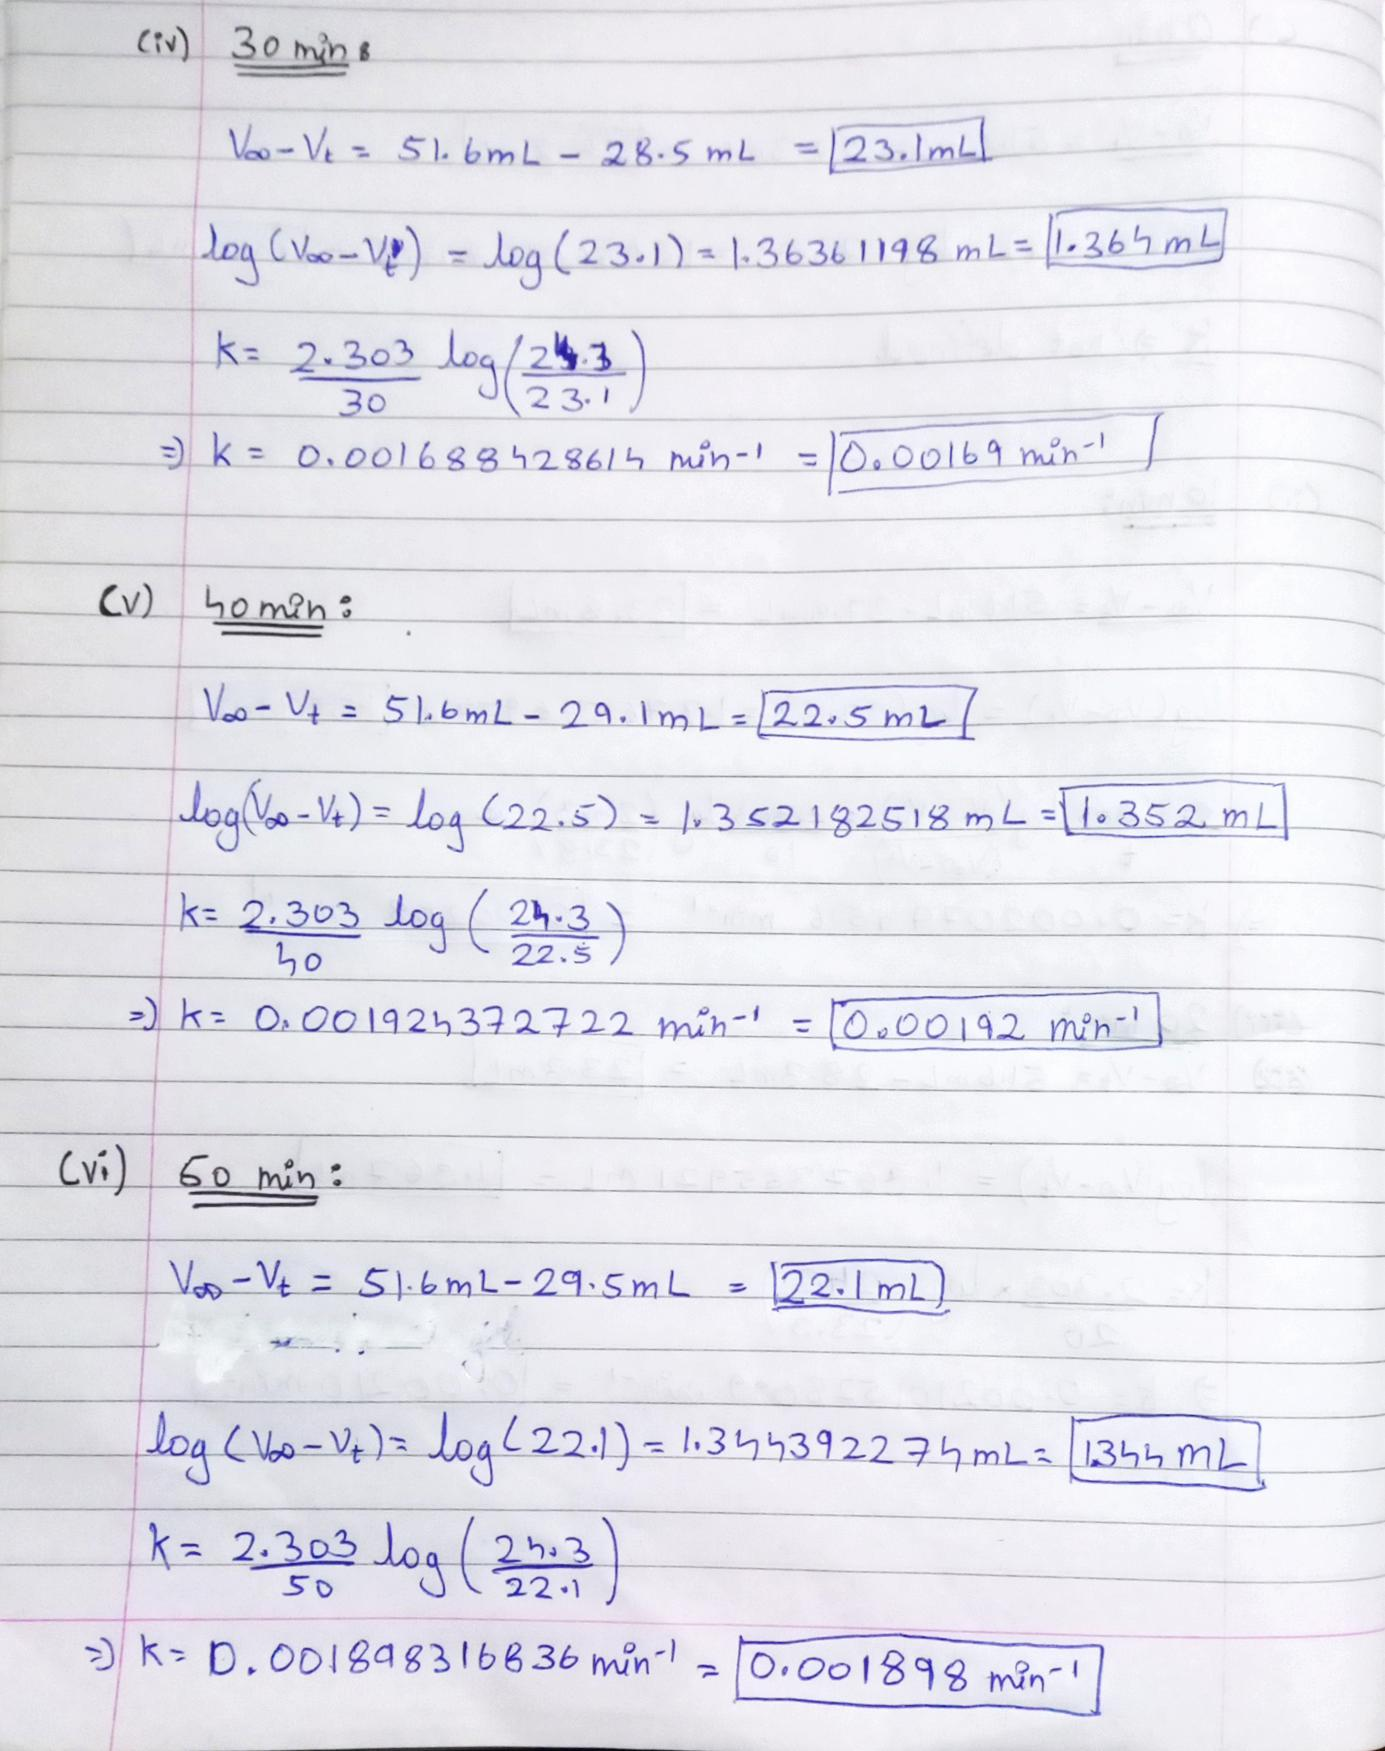 (iv) 30 min :
V∞ - Vt = 51.6mL - 28.5 mL = 23.1mL
log (V∞ - Vt) = log (23.1) = 1.36361198 mL = 1.364 mL
k = 2.303/30 log (24.3/23.1)
⇒ k = 0.001688428614 min-1 = 0.00169 min-1
(v) 40 min :
V∞ - Vt = 51.6mL - 29.1mL = 22.5 mL
log(V∞ - Vt) = log (22.5) = 1.352182518 mL = 1.352 mL
k = 2.303/40 log (24.3/22.5)
⇒ k = 0.001924372722 min-1 = 0.00192 min-1
(vi) 50 min :
V∞ - Vt = 51.6mL - 29.5mL = 22.1 mL
log (V∞ - Vt) = log (22.1) = 1.344392274 mL = 1.344 mL
k = 2.303/50 log (24.3/22.1)
⇒ k = 0.001898316836 min-1 = 0.001898 min-1